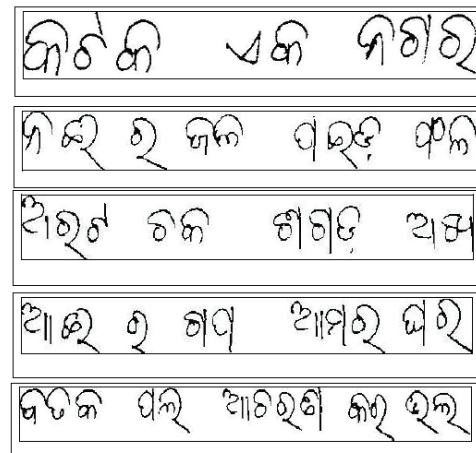 କଟକ ଏକ ନଗର
ନଈ ର ଜଳ ପଇଡ଼ ଫଳ
ଅରଟ ଚକ ଶଗଡ଼
ଆଈ ର ଗପ ଆମର ଘର
ବତକ ପଲ ଆଚରଣ କର ଭଲ